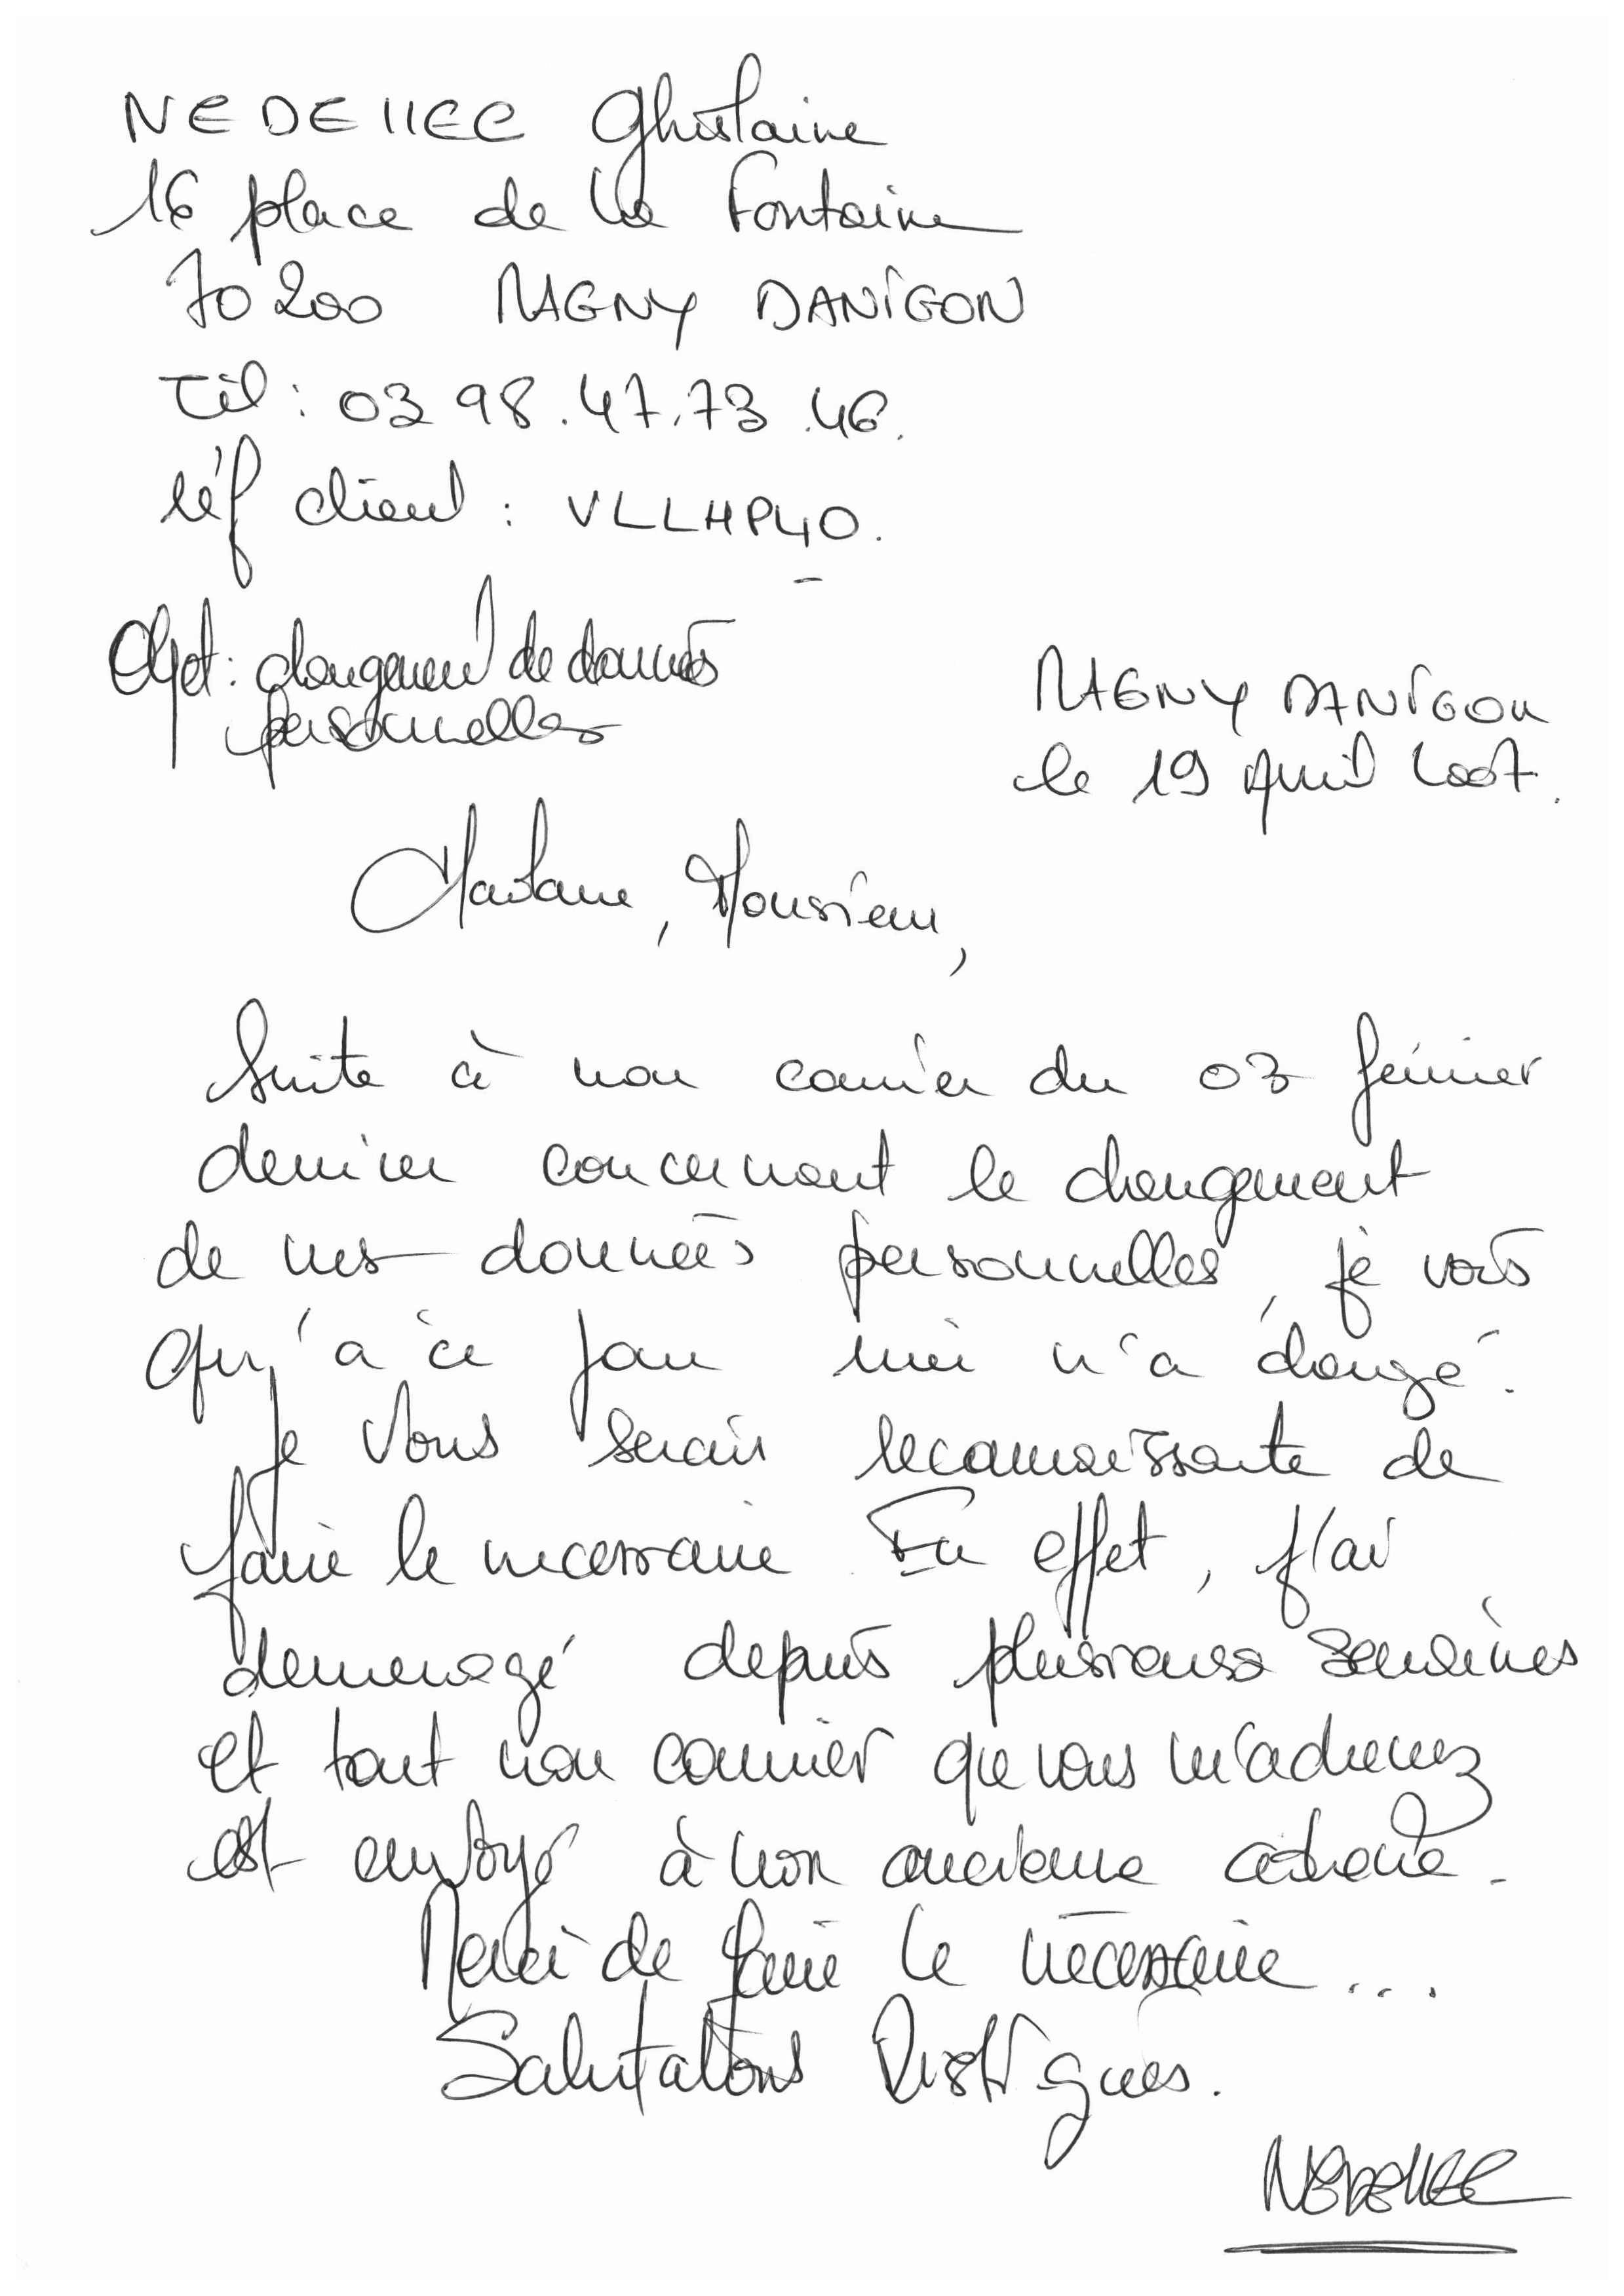 NEDELLEC Ghislaine
16 place de la Fontaine
70200 MAGNY DANIGON
tél : 03 98.47.73.46.
réf client : VLLHP40.
Objet : changement de données
personnelles
MAGNY DANIGON
le 19 Avril 2007.
Madame, Monsieur,
Suite à mon courrier du 03 février
dernier concernant le changement
de mes données personnelles, je vois
qu'à ce jour rien n'a changé.
je vous serais reconnaissante de
faire le necessaire. En effet, j'ai
demenagé depuis plusieurs semaines
et tout mon courrier que vous m'adressez
est envoyé à mon ancienne adresse.
Merci de faire le nécessaire...
Salutations Distingués.
NEDELLEC